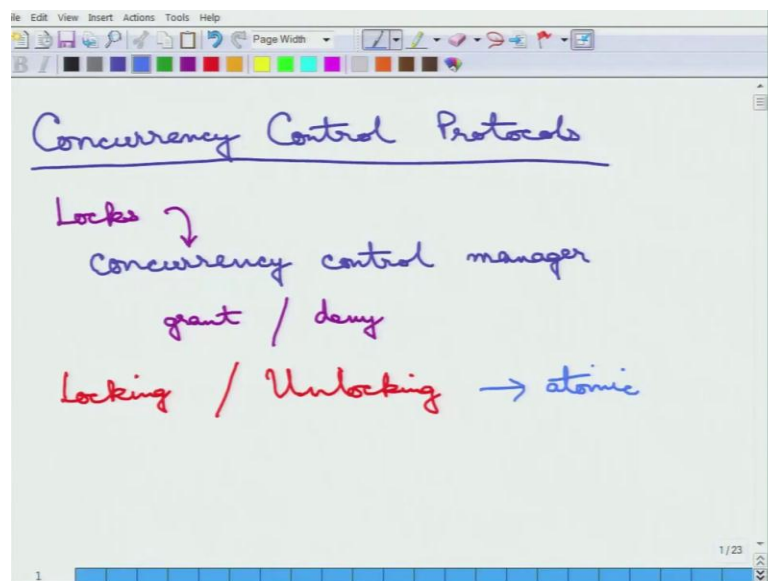 ile Edit View Insert Actions Tools Help
Page Width
Concurrency Control Protocols
Locks
concurrency control manager
grant / deny
Locking / Unlocking → atomic
1/23
1